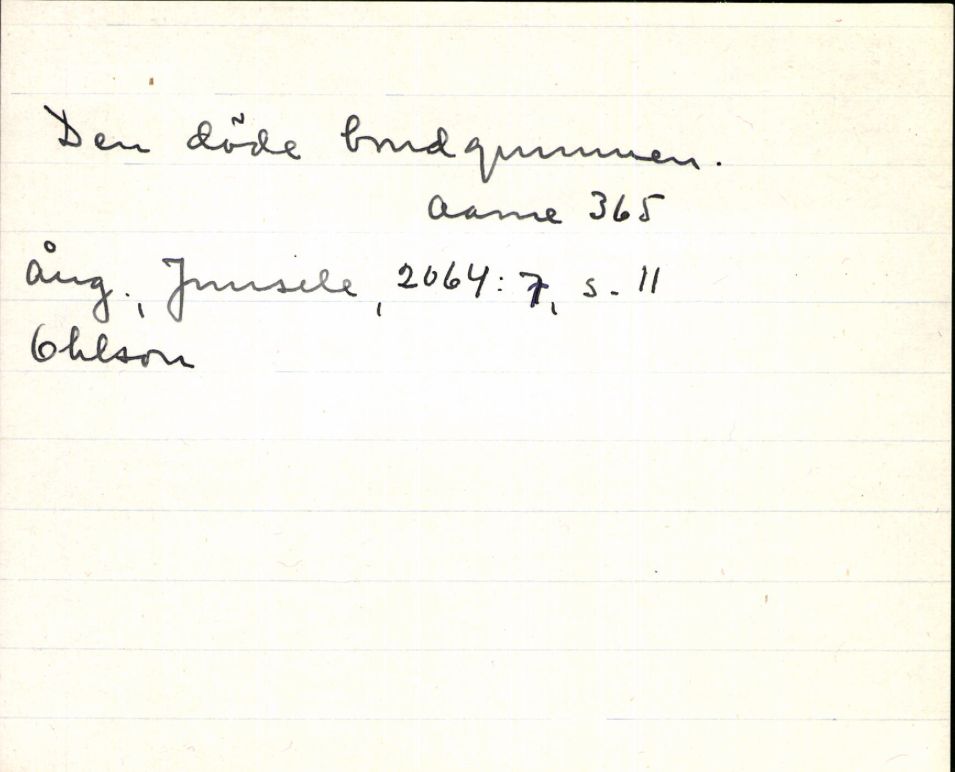 Den döde brudgummen.
Aarne 365
Ång., Junsele, 2064: 7, s. 11
Ohlson